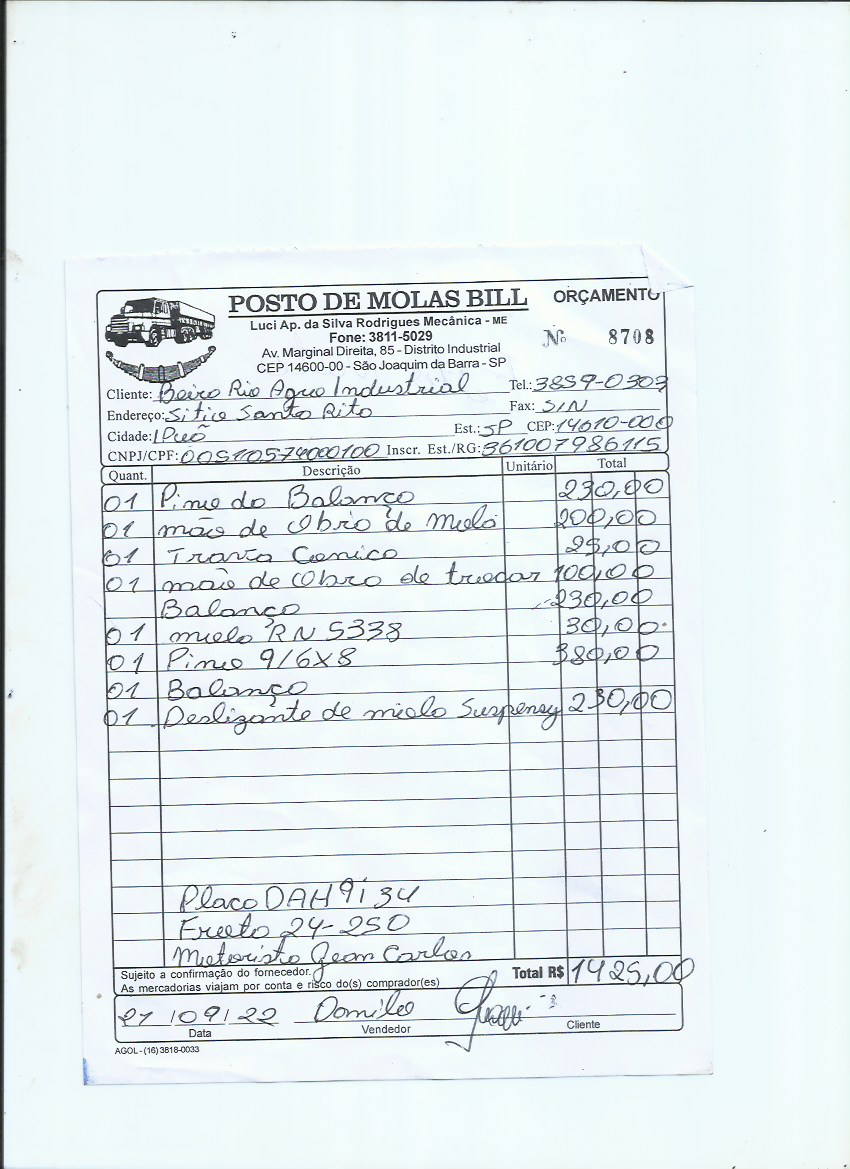 POSTO DE MOLAS BILL ORÇAMENTO
Luci Ap. da Silva Rodrigues Mecânica - ME
Fone: 3811-5029
Nº 8708
Av. Marginal Direita, 85 - Distrito Industrial
CEP 14600-00 - São Joaquim da Barra - SP
Cliente: Beiro Rio Agro Industrial Tel.: 3859-0303
Endereço: Sitio Santo Rito Fax: S/N
Cidade: IPuã Est.: SP CEP: 14610-000
CNPJ/CPF: 00510574000100 Inscr. Est./RG: 361007986115
Quant. Descrição Unitário Total
01 Pino do Balanço 230,00
01 mão de Obro de molo 200,00
01 Trava Conico 25,00
01 mão de Obro de trocar 100,00
Balanço 230,00
01 molo RN 5338 30,00
01 Pino 9/6X8 380,00
01 Balanço
01 Deslizante de molo 230,00
Placo DAH 9134
Frota 24-250
Motoristo Jean Carlos
Sujeito a confirmação do fornecedor.
As mercadorias viajam por conta e risco do(s) comprador(es)
Total R$ 1425,00
21/09/22 Danilo
Data Vendedor Cliente
AGOL - (16) 3818-0033